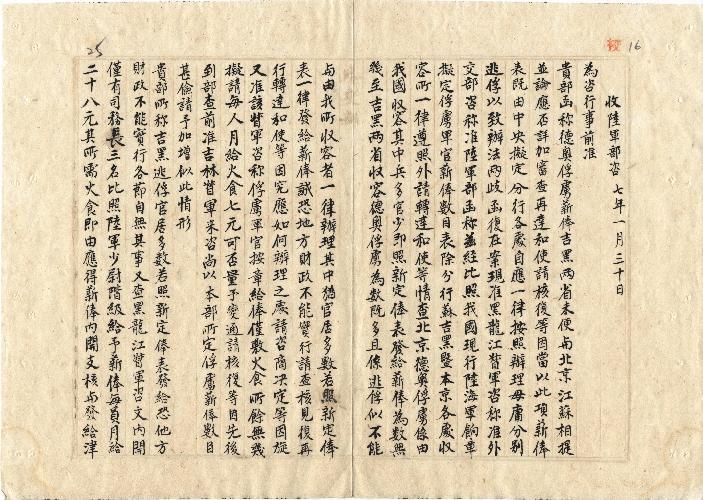 16
收陸軍部咨 七年一月三十日
為咨行事前准
貴部函称德奥俘虜薪俸吉黑两省未便与北京江蘇相提
並論應否詳加審查再達和使請核復等因當以此項薪俸
表既由中央擬定分行各處自應一律按照辦理毋庸分别
逃俘以致辦法两歧函復在案現准黑龍江督軍咨称准外
交部咨称准陸軍部函称兹經比照我國現行陸海軍餉章
擬定俘虜軍官薪俸数目表除分行蘇吉黑暨本京各處收
容所一律遵照外請轉達和使等情查北京德奥俘虜係由
我國收容其中兵多官少即照新定俸表發給薪俸為数無
幾至吉黑两省收容德奥俘虜為数既多且係逃俘似不能
25
与由我所收容者一律辦理其中猶官居多数若照新定俸
表一律發給薪俸誠恐地方財政不能實行請查核見復再
行轉達和使等因究應如何辦理之處請咨商决定等因旋
又准該督軍咨称俘虜軍官按章給俸僅敷火食所餘無幾
擬請每人月給火食七元可否量予变通請核復等因先後
到部查前准吉林督軍来咨尚以本部所定俘虜薪俸数目
甚儉請予加增似此情形
貴部所称吉黑逃俘官居多数若照新定俸表發給恐地方
財政不能實行各節自無其事又查黑龍江督軍咨文内開
僅有司務長三名比照陸軍少尉階級給予薪俸每員月給
二十八元其所需火食即由應得薪俸内開支核与發給津